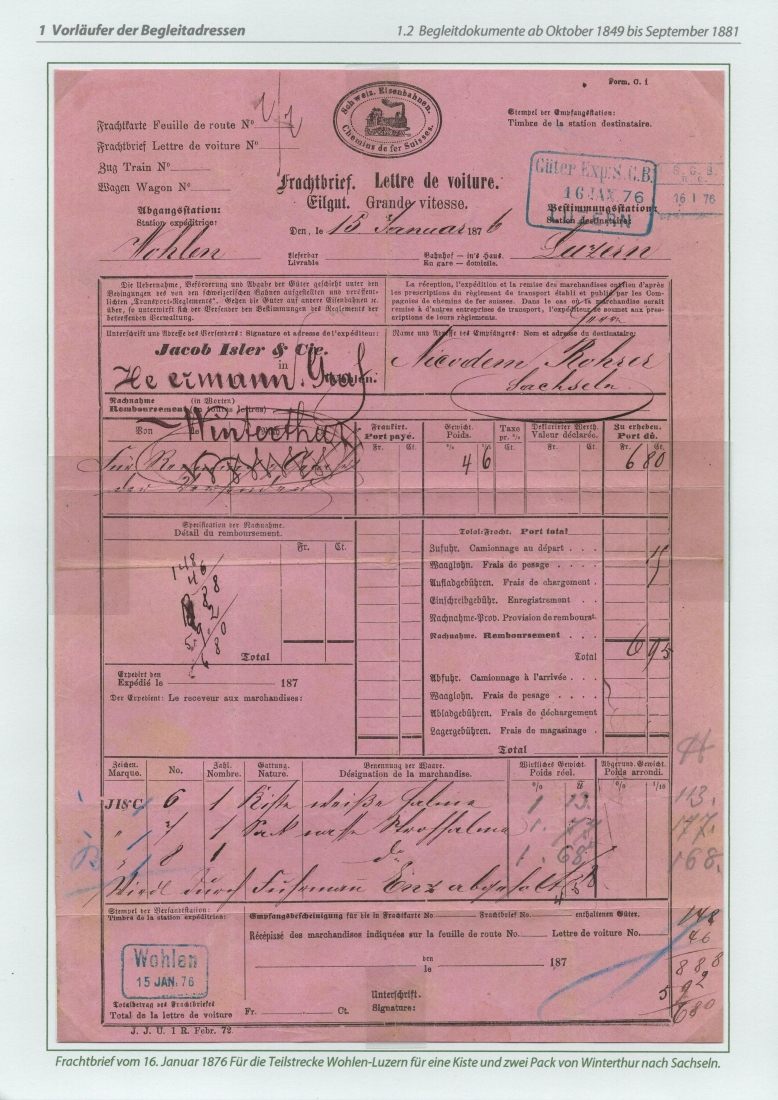 1 Vorläufer der Begleitadressen
1.2 Begleitdokumente ab Oktober 1849 bis September 1881
Form. G. 1
Schweiz. Eisenbahnen.
Chemins de fer Suisses.
Stempel der Empfangstation:
Timbre de la station destinataire.
Frachtkarte Feuille de route No
Frachtbrief Lettre de voiture No
Zug Train No
Wagen Wagon No
Güter Exp. S.C.B.
16 JAN. 76
LUZERN
S. C. B.
16 I 76
Frachtbrief. Lettre de voiture.
Eilgut. Grande vitesse.
Abgangsstation:
Station expéditrice:
Bestimmungsstation:
Station destinataire:
Den, le 15 Januar 1876
Wohlen
Luzern
Lieferbar
Livrable
Bahnhof — in's Haus.
En gare — domicile.
Die Uebernahme, Beförderung und Abgabe der Güter geschieht unter den
Bedingungen des von den schweizerischen Bahnen aufgestellten und veröffent-
lichten „Transport-Reglements“. Gehen die Güter auf andere Eisenbahnen
über, so unterwirft sich der Versender den Bestimmungen des Reglements der
betreffenden Verwaltung.
La réception, l'expédition et la remise des marchandises ont lieu d'après
les prescriptions du règlement de transport établi et publié par les Com-
pagnies de chemins de fer suisses. Dans le cas où la marchandise serait
remise à d'autres entreprises de transport, l'expéditeur se soumet aux pres-
criptions de leurs règlements.
Herrn
Unterschrift und Adresse des Versenders: Signature et adresse de l'expéditeur:
Name und Adresse des Empfängers: Nom et adresse du destinataire:
Jacob Isler & Cie.
in
Heermann. Graf
Nicodem Rohrer
Sachseln
Nachnahme (in Worten)
Remboursement (en toutes lettres)
Von
Winterthur
Frankirt.
Port payé.
Gewicht.
Poids.
Taxe
pr. %
Deklarirter Werth.
Valeur déclarée.
Zu erheben.
Port dû.
Fr. Ct. Fr. Ct. Fr. Ct.
46
6 80
Spezifikation der Nachnahme.
Détail du remboursement.
Fr. Ct.
148
46
888
592
680
Total
Total-Fracht. Port total
Zufuhr. Camionnage au départ
Waaglohn. Frais de pesage
Aufladgebühren. Frais de chargement
Einschreibgebühr. Enregistrement
Nachnahme-Prov. Provision de rembourst.
Nachnahme. Remboursement
Total
6 95
Abfuhr. Camionnage à l'arrivée
Waaglohn. Frais de pesage
Abladgebühren. Frais de déchargement
Lagergebühren. Frais de magasinage
Total
Expedirt den
Expédié le 187
Der Expedient: Le receveur aux marchandises:
Zeichen.
Marque.
No.
Zahl.
Nombre.
Gattung.
Nature.
Benennung der Waare.
Désignation de la marchandise.
Wirkliches Gewicht.
Poids réel.
Abgerund. Gewicht.
Poids arrondi.
JI&C. 6 1 Kiste weiße Halme 1 13. 113.
" 7 1 Sack 1. 77 177.
" 8 1 do 1. 68 168.
Wird durch Fuhrmann Enz abgeholt 458
Stempel der Versandtstation:
Timbre de la station expéditrice:
Wohlen
15 JAN. 76
Empfangsbescheinigung für die in Frachtkarte No Frachtbrief No enthaltenen Güter.
Récépissé des marchandises indiquées sur la feuille de route No. Lettre de voiture No.
den
le 187
148
46
888
592
680
Unterschrift.
Signature:
Totalbetrag des Frachtbriefes
Total de la lettre de voiture Fr. Ct.
J. J. U. 1 R. Febr. 72.
Frachtbrief vom 16. Januar 1876 Für die Teilstrecke Wohlen-Luzern für eine Kiste und zwei Pack von Winterthur nach Sachseln.